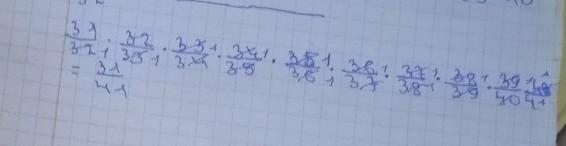 31/32 · 32/33 · 33/34 · 34/35 · 35/36 · 36/37 · 37/38 · 38/39 · 39/40 · 40/41
= 31/41